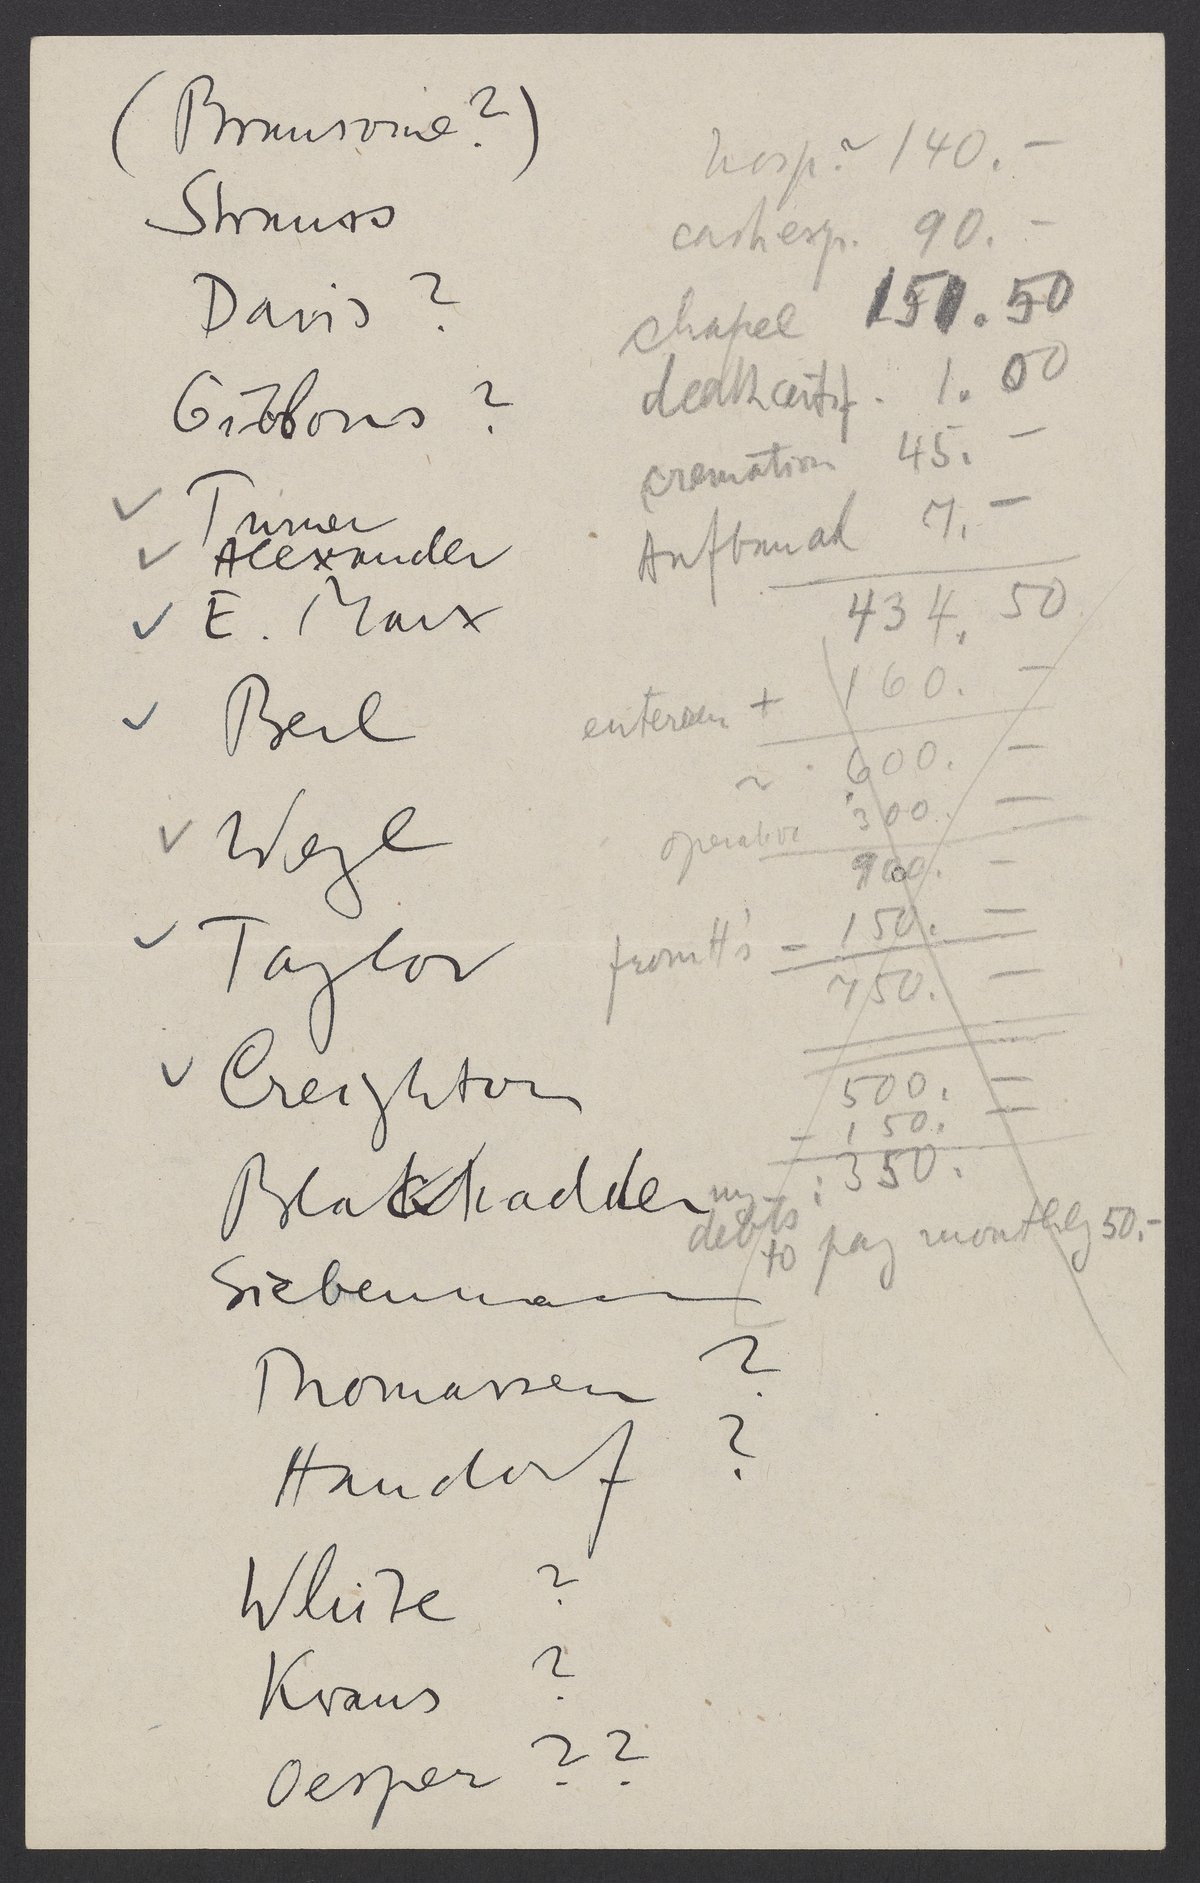 (Bransome?)
Strauss
Davis ?
Gibbons ?
✓ Turner
✓ Alexander
✓ E. Marx
✓ Berl
✓ Weyl
✓ Taylor
✓ Creighton
Blackhadder
Siebenmann
Thomassen ?
Handorf ?
White ?
Kraus ?
Oesper ??
hosp. ~ 140.–
cash exp. 90.–
chapel 151.50
death certif. 1.00
cremation 45.–
Aufbau ad 7.–
434.50
+ 160.–
~ 600.–
operative 300.–
900.–
from H's – 150.–
750.–
500.–
– 150.–
my debts : 350.
to pay monthly 50.–